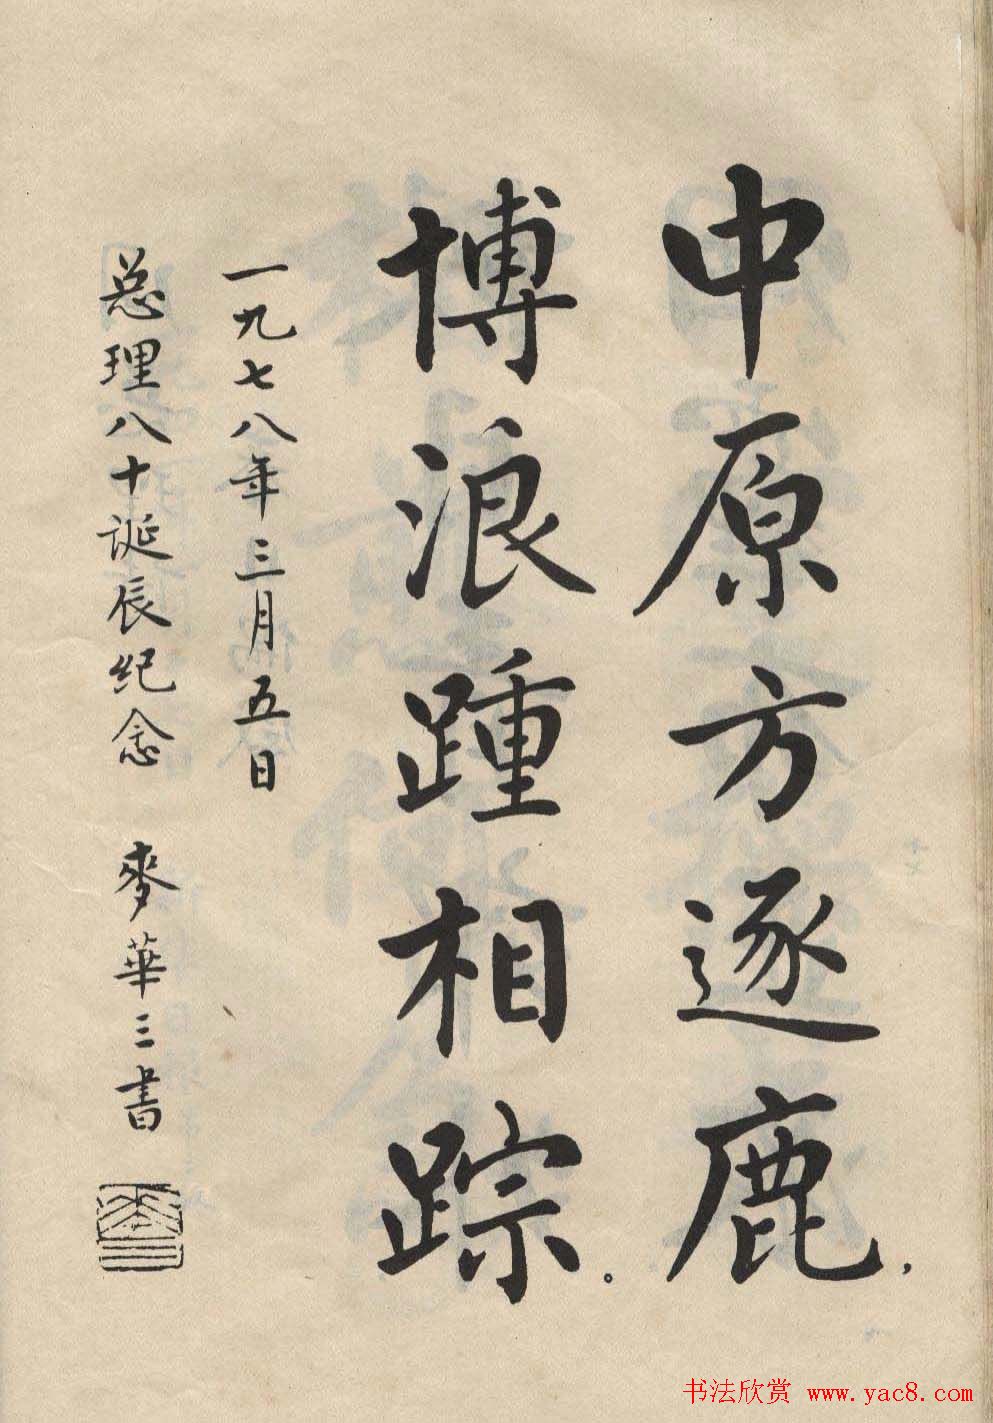 中原方逐鹿，
博浪踵相踪。
一九七八年三月五日
总理八十诞辰纪念 麥華三書
书法欣赏 www.yac8.com